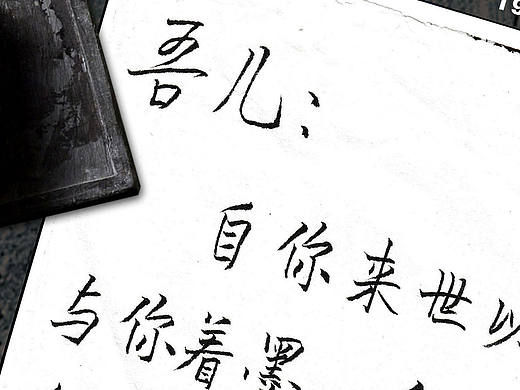 吾儿：
自你来世以
与你着墨